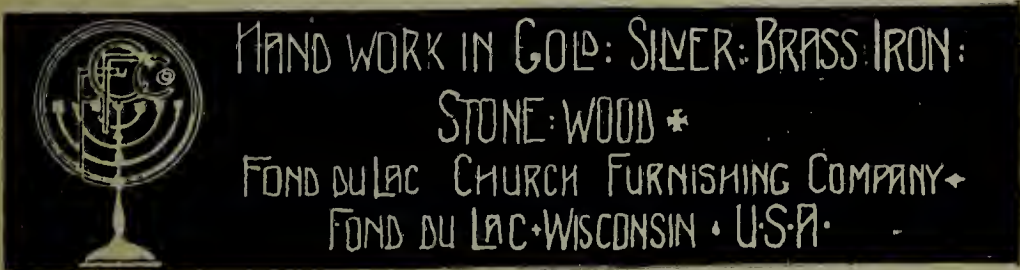 HAND WORK IN GOLD: SILVER: BRASS: IRON:
STONE: WOOD ✠
FOND DU LAC CHURCH FURNISHING COMPANY✦
FOND DU LAC • WISCONSIN • U•S•A•